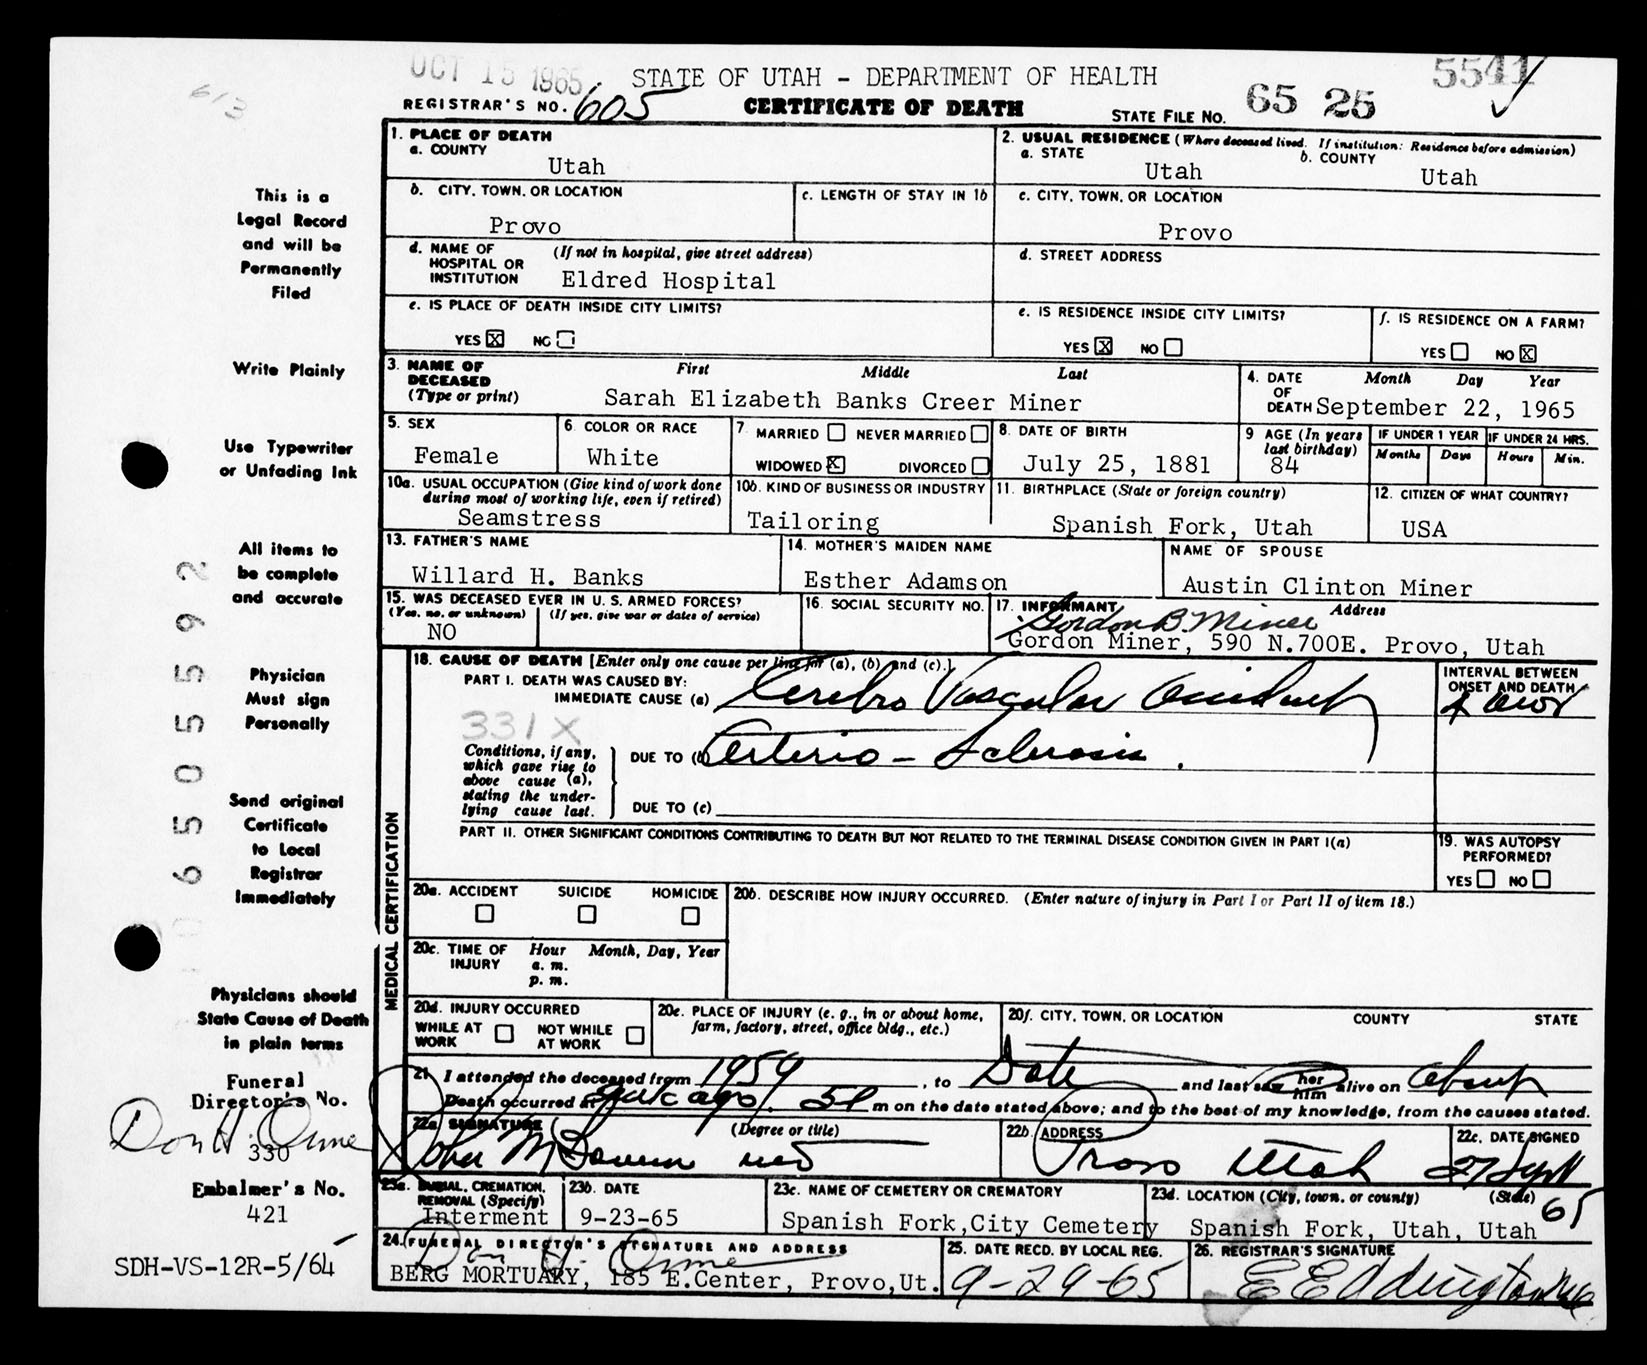 OCT 15 1965
STATE OF UTAH - DEPARTMENT OF HEALTH
5541
613
REGISTRAR'S NO. 605
CERTIFICATE OF DEATH
STATE FILE NO. 65 25
This is a
Legal Record
and will be
Permanently
Filed
Write Plainly
Use Typewriter
or Unfading Ink
All items to
be complete
and accurate
Physician
Must sign
Personally
Send original
Certificate
to Local
Registrar
Immediately
Physicians should
State Cause of Death
in plain terms
Funeral
Director's No.
Don H. Orme
330
Embalmer's No.
421
SDH-VS-12R-5/64
6 5 0 5 5 9 2
1. PLACE OF DEATH
a. COUNTY
Utah
2. USUAL RESIDENCE (Where deceased lived. If institution: Residence before admission)
a. STATE
Utah
b. COUNTY
Utah
b. CITY, TOWN, OR LOCATION
Provo
c. LENGTH OF STAY IN 1b
c. CITY, TOWN, OR LOCATION
Provo
d. NAME OF HOSPITAL OR INSTITUTION
(If not in hospital, give street address)
Eldred Hospital
d. STREET ADDRESS
e. IS PLACE OF DEATH INSIDE CITY LIMITS?
YES X NO
e. IS RESIDENCE INSIDE CITY LIMITS?
YES X NO
f. IS RESIDENCE ON A FARM?
YES NO X
3. NAME OF DECEASED (Type or print)
First Middle Last
Sarah Elizabeth Banks Creer Miner
4. DATE OF DEATH
Month Day Year
September 22, 1965
5. SEX
Female
6 COLOR OR RACE
White
7 MARRIED NEVER MARRIED
WIDOWED X DIVORCED
8. DATE OF BIRTH
July 25, 1881
9 AGE (In years last birthday)
84
IF UNDER 1 YEAR
Months Days
IF UNDER 24 HRS.
Hours Min.
10a. USUAL OCCUPATION (Give kind of work done during most of working life, even if retired)
Seamstress
10b. KIND OF BUSINESS OR INDUSTRY
Tailoring
11. BIRTHPLACE (State or foreign country)
Spanish Fork, Utah
12. CITIZEN OF WHAT COUNTRY?
USA
13. FATHER'S NAME
Willard H. Banks
14. MOTHER'S MAIDEN NAME
Esther Adamson
NAME OF SPOUSE
Austin Clinton Miner
15. WAS DECEASED EVER IN U. S. ARMED FORCES?
(Yes, no, or unknown) (If yes, give war or dates of service)
NO
16. SOCIAL SECURITY NO.
17. INFORMANT Address
Gordon B. Miner
Gordon Miner, 590 N.700E. Provo, Utah
MEDICAL CERTIFICATION
18. CAUSE OF DEATH [Enter only one cause per line for (a), (b) and (c).]
INTERVAL BETWEEN ONSET AND DEATH
PART I. DEATH WAS CAUSED BY:
IMMEDIATE CAUSE (a) Cerebro Vascular Accident
331X
Conditions, if any, which gave rise to above cause (a), stating the underlying cause last.
DUE TO (b) Arterio-Sclerosis.
DUE TO (c)
PART II. OTHER SIGNIFICANT CONDITIONS CONTRIBUTING TO DEATH BUT NOT RELATED TO THE TERMINAL DISEASE CONDITION GIVEN IN PART I(a)
19. WAS AUTOPSY PERFORMED?
YES NO
20a. ACCIDENT SUICIDE HOMICIDE
20b. DESCRIBE HOW INJURY OCCURRED. (Enter nature of injury in Part I or Part II of item 18.)
20c. TIME OF INJURY
Hour Month, Day, Year
a. m.
p. m.
20d. INJURY OCCURRED
WHILE AT WORK NOT WHILE AT WORK
20e. PLACE OF INJURY (e. g., in or about home, farm, factory, street, office bldg., etc.)
20f. CITY, TOWN, OR LOCATION COUNTY STATE
21. I attended the deceased from 1959, to Date and last saw her him alive on about
Death occurred at m on the date stated above; and to the best of my knowledge, from the causes stated.
22a. SIGNATURE (Degree or title)
22b. ADDRESS
Provo Utah
22c. DATE SIGNED
27 Sept 65
23a. BURIAL, CREMATION, REMOVAL (Specify)
Interment
23b. DATE
9-23-65
23c. NAME OF CEMETERY OR CREMATORY
Spanish Fork, City Cemetery
23d. LOCATION (City, town, or county) (State)
Spanish Fork, Utah, Utah
24. FUNERAL DIRECTOR'S SIGNATURE AND ADDRESS
Don H. Orme
BERG MORTUARY, 185 E.Center, Provo, Ut.
25. DATE RECD. BY LOCAL REG.
9-29-65
26. REGISTRAR'S SIGNATURE
E E Eddington